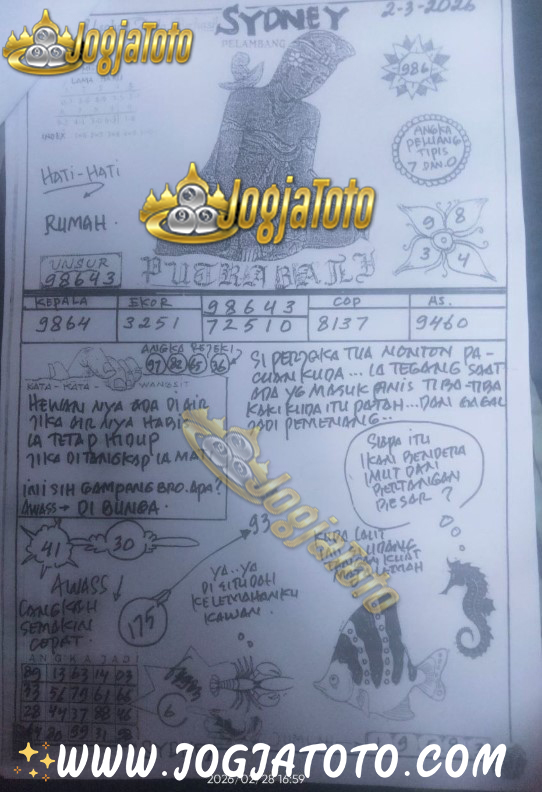 JogjaToto
SYDNEY
2-3-2026
PELAMBANG
LAMA
986
ANGKA
PELUANG
TIPIS
7 DAN 0
HATI-HATI
RUMAH.
JogjaToto
9 8
3 4
UNSUR
98643
PUTRA BALI
KEPALA EKOR 98643 COP AS.
9864 3251 72510 8137 9460
ANGKA REJEKI
97 82 65 36
KATA-KATA WANGSIT
HEWAN NYA ADA DI AIR
JIKA AIR NYA HABIS
IA TETAP HIDUP
JIKA DITANGKAP IA MATI
INI SIH GAMPANG BRO. APA?
AWASS → DI BUNGA.
SI PERJAKA TUA NONTON PA-
CUAN KUDA... IA TEGANG SAAT
ADA YG MASUK FINIS TIBA-TIBA
KAKI KUDA ITU PATAH... DAN GAGAL
JADI PEMENANG..
SIAPA ITU
IKAN BENDERA
IMUT DAN
BERTANGAN
BESAR ?
JogjaToto
41
30
93
175
AWASS
LANGKAH
SEMAKIN
CEPAT.
YA..YA
DI SITULAH
KELEMAHANKU
KAWAN.
UDANG
KUAT
LEMAH
ANGKA JADI
89 13 63 14 03
33 56 79 61 66
28 44 37 88 46
31
6
WWW.JOGJATOTO.COM
2026/02/28 16:59